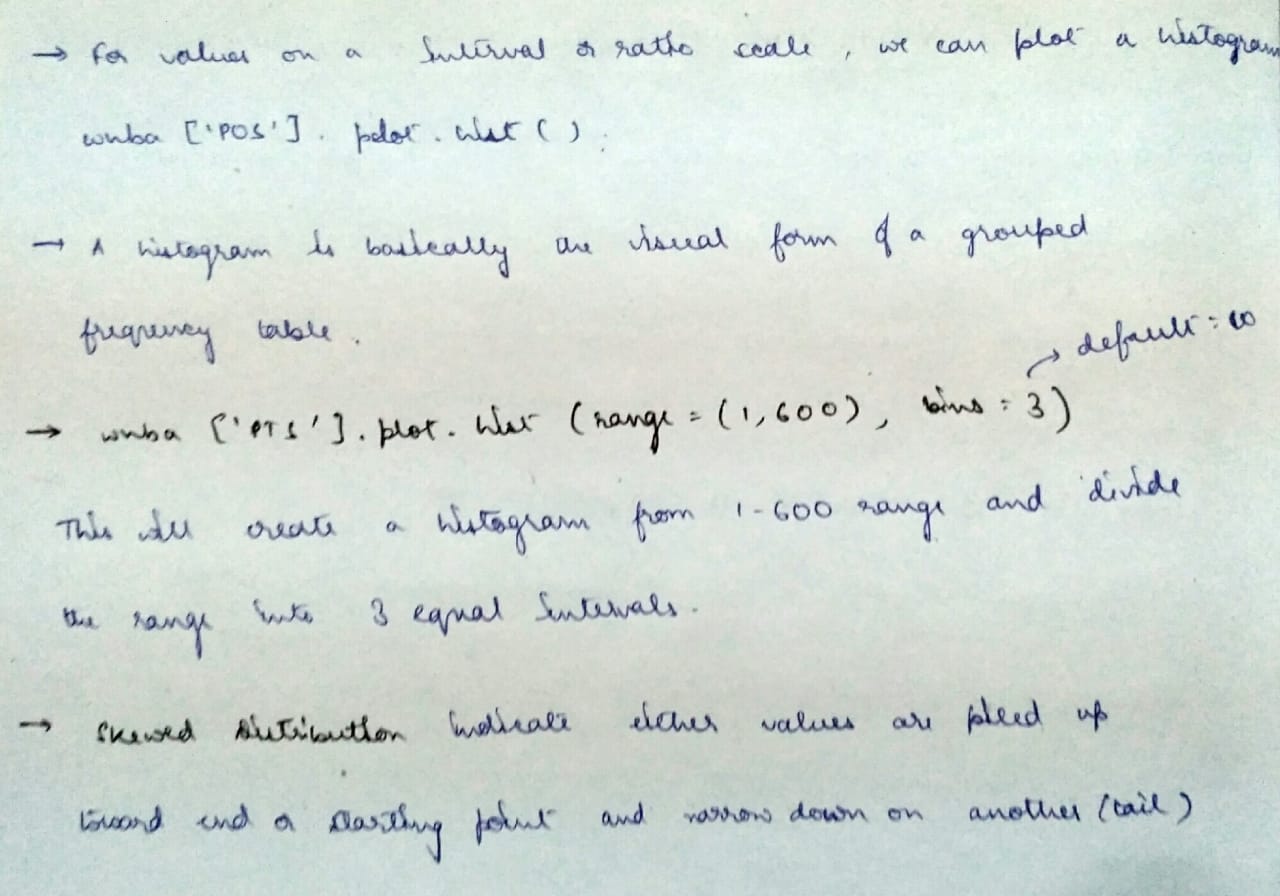 → For values on a Interval or ratio scale, we can plot a histogram
wnba ['POS']. plot. hist ( ).
→ A histogram is basically the visual form of a grouped
frequency table.
→ default = 10
→ wnba ['PTS']. plot. hist (range = (1,600), bins = 3)
This will create a histogram from 1-600 range and divide
the range into 3 equal intervals.
→ Skewed Distribution indicate either values are piled up
toward end or starting point and narrow down on another (tail)